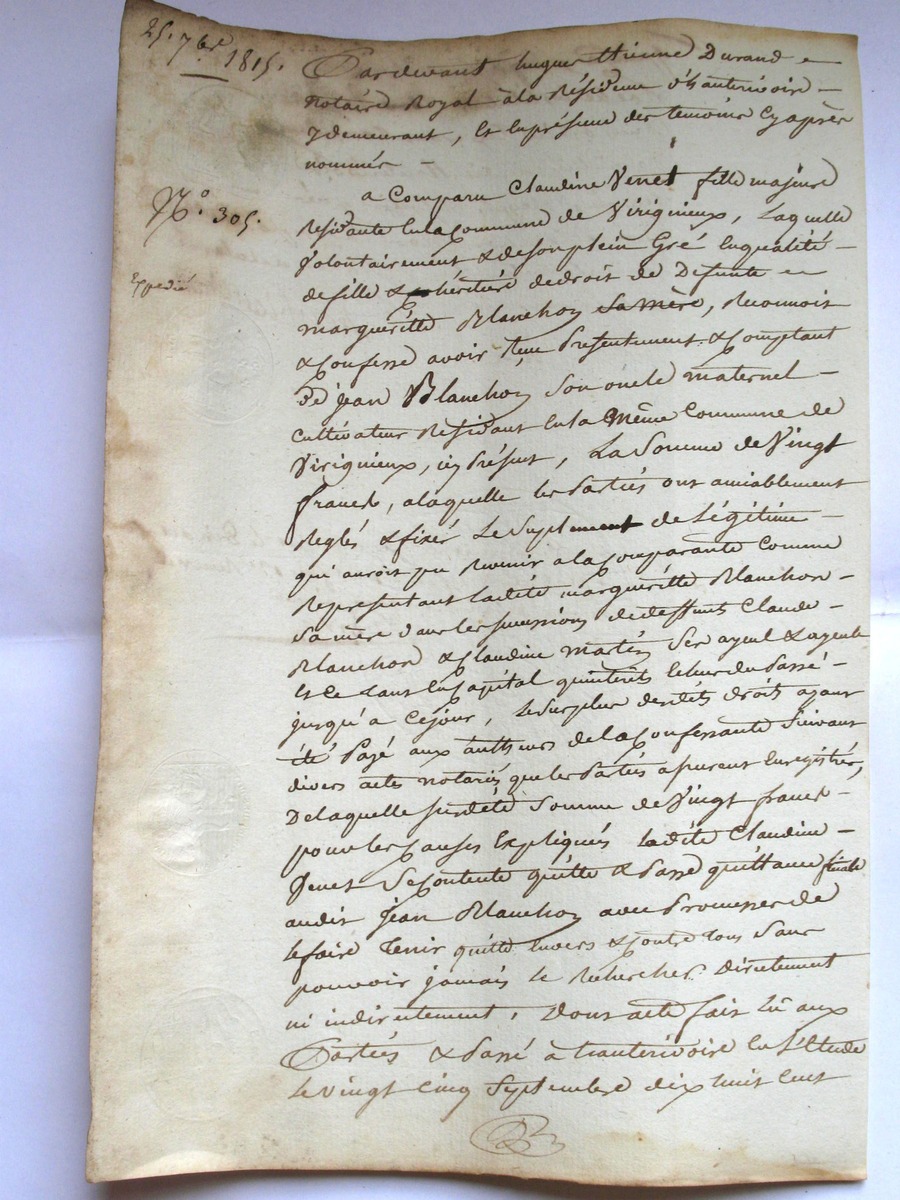 25. 7bre 1815.
Pardevant hugues Etienne Durand
notaire Royal à la Résidence d'hauterivoire
y demeurant, Et En présence des temoins Cy après
nommés
N.º 305.
Expedié
a Comparu Claudine Venet fille majeure
Residante En la Commune de Virigneux, Laquelle
Volontairement & de son plein Gré En qualité
de fille & héritière de droit de Defunte
margueritte Blanchon sa mère, Reconnoit
& Confesse avoir Reçu Présentement & Comptant
De Jean Blanchon Son oncle maternel
Cultivateur Résidant En la Même Commune de
Virignieux, icy Présent, La Somme de Vingt
francs, a laquelle les Parties ont amiablement
Reglés & fixés Le Suplement de Légitime
qui auroit pu Revenir a la Comparante Comme
Representant ladite margueritte Blanchon
Sa mère Dans les successions de deffunts Claude
Blanchon & Claudine Martin Ses ayeul & ayeule
Et Ce tant En Capital qu'interets Echus du Passé
jusqu'a Cejour, Le Surplus desdits droits ayant
été Payé aux autheurs de la Confessante Suivant
divers actes notariés que les Parties assurent Enregistrés,
De laquelle susdite Somme de Vingt francs
pour les Causes Expliquées Ladite Claudine
Venet Se Contente quitte & Passe quittance finale
audit Jean Blanchon avec Promesses de
le faire Tenir quitte Envers & Contre tous Sans
pouvoir jamais le Rechercher Directement
ni indirectement, Dont acte fait Lû aux
Parties & Passé à hauterivoire En l'Etude
Le vingt Cinq Septembre dix huit Cent